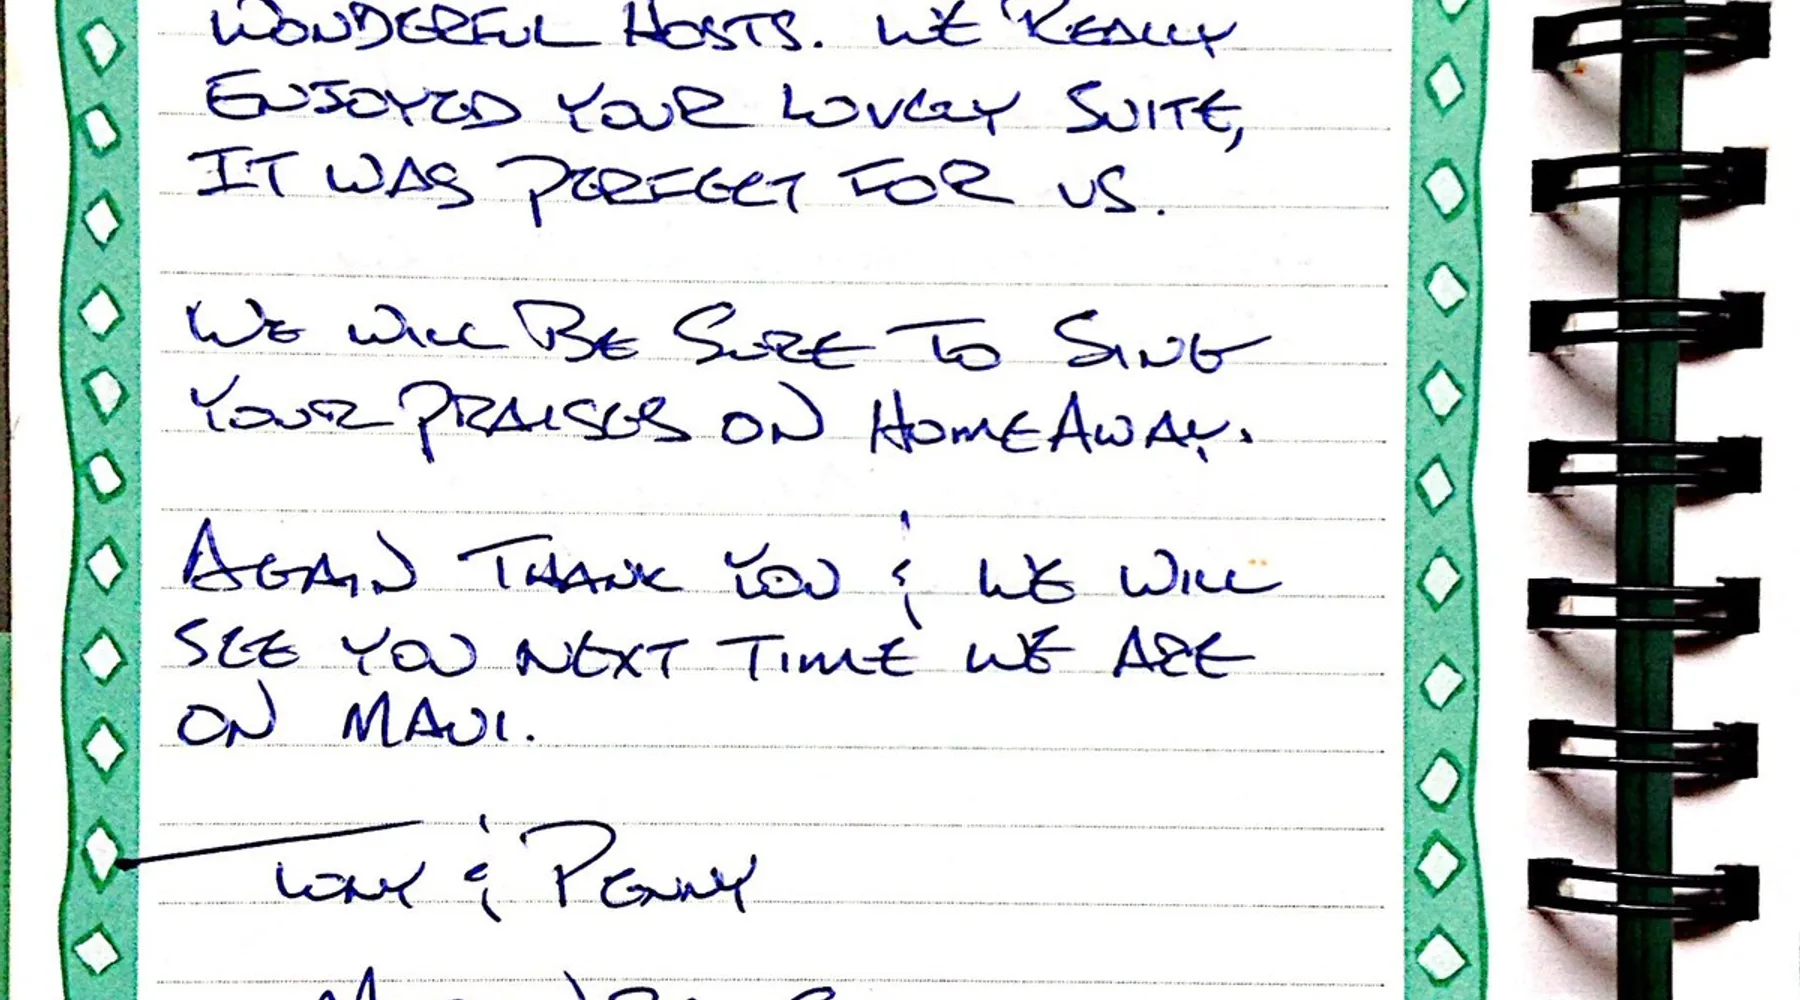 WONDERFUL HOSTS. WE REALLY
ENJOYED YOUR LOVELY SUITE,
IT WAS PERFECT FOR US.
WE WILL BE SURE TO SING
YOUR PRAISES ON HOMEAWAY.
AGAIN THANK YOU & WE WILL
SEE YOU NEXT TIME WE ARE
ON MAUI.
TONY & PENNY